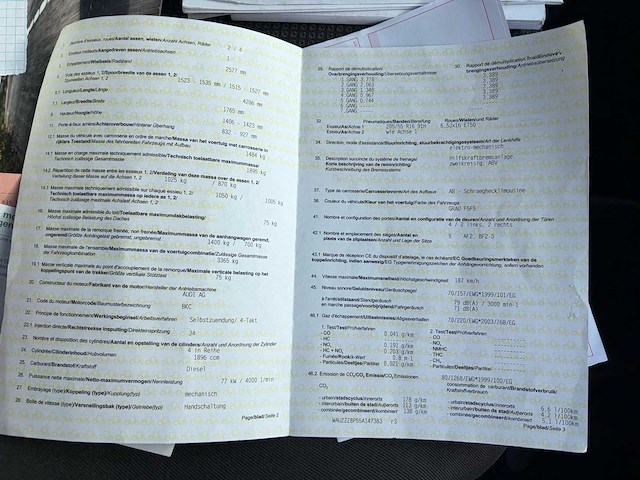 Nombre d'essieux, roues/Aantal assen, wielen/Anzahl Achsen, Räder
2 / 4
Essieux moteurs/Aangedreven assen/Antriebsachsen
1
Empattement/Wielbasis/Radstand
2577 mm
1523 - 1535 mm / 1515 - 1527 mm
Longueur/Lengte/Länge
4286 mm
7.1 Largeur/Breedte/Breite
1765 mm
Hauteur/Hoogte/Höhe
1406 - 1423 mm
11. Porte-à-faux arrière/Achteroverbouw/Hinterer Überhang
832 - 927 mm
12.1 Masse du véhicule avec carrosserie en ordre de marche/Massa van het voertuig met carrosserie in rijklare toestand/Masse des fahrbereiten Fahrzeugs mit Aufbau
1484 kg
14.1 Masse en charge maximale techniquement admissible/Technisch toelaatbare maximummassa/
Technisch zulässige Gesamtmasse
1895 kg
14.2 Répartition de cette masse entre les essieux 1, 2/Verdeling van deze massa over de assen 1, 2/
Verteilung dieser Masse auf die Achsen 1, 2
1025 kg / 870 kg
14.3 Masse maximale techniquement admissible sur chaque essieu 1, 2/
Technisch toelaatbare maximummassa op iedere as 1, 2/
Technisch zulässige maximale Achslast Achsen 1, 2
1050 kg / 1005 kg
16. Masse maximale admissible du toit/Toelaatbare maximumdakbelasting/
Höchst zulässige Belastung des Daches
75 kg
17. Masse maximale de la remorque freinée, non freinée/Maximummassa van de aanhangwagen geremd, ongeremd/Größte Anhängelast gebremst, ungebremst
1400 kg / 700 kg
18. Masse maximale de l'ensemble/Maximummassa van de voertuigcombinatie/Zulässige Gesamtmasse der Fahrzeugkombination
3365 kg
19.1 Masse verticale maximale au point d'accouplement de la remorque/Maximale verticale belasting op het koppelingspunt van de trekker/Größte vertikale Stützlast
75 kg
20. Constructeur du moteur/Fabrikant van de motor/Hersteller der Antriebsmaschine
AUDI AG
21. Code du moteur/Motorcode/Baumusterbezeichnung
BKC
22. Principe de fonctionnement/Werkingsbeginsel/Arbeitsverfahren
Selbstzuendung/ 4-Takt
22.1 Injection directe/Rechtstreekse inspuiting/Direkteinspritzung
JA
23. Nombre et disposition des cylindres/Aantal en opstelling van de cilinders/Anzahl und Anordnung der Zylinder
4 in Reihe
24. Cylindrée/Cilinderinhoud/Hubvolumen
1896 ccm
25. Carburant/Brandstof/Kraftstoff
Diesel
26. Puissance nette maximale/Netto-maximumvermogen/Nennleistung
77 kW / 4000 l/min
27. Embrayage (type)/Koppeling (type)/Kupplung(typ)
mechanisch
28. Boîte de vitesse (type)/Versnellingsbak (type)/Getriebe(typ)
Handschaltung
Page/blad/Seite 2
29. Rapport de démultiplication/
Overbrengingsverhouding/Übersetzungsverhältnisse
1.GANG 3.778
2.GANG 2.063
3.GANG 1.348
4.GANG 0.967
5.GANG 0.744
6.GANG
7.GANG
30. Rapport de démultiplication
3.389
3.389
3.389
3.389
3.389
32. Pneumatiques/Banden/Bereifung
Roues/Wielen/und Räder
Essieu/As/Achse 1
205/55 R16 91H
6.5Jx16 ET50
Essieu/As/Achse 2
wie Achse 1
34. Direction, mode d'assistance/Stuurinrichting, stuurbekrachtigingssysteem/Art der Lenkhilfe
elektro-mechanisch
35. Description succincte du système de freinage/
Korte beschrijving van de reminrichting/
Kurzbeschreibung des Bremssystems
Hilfskraftbremsanlage
zweikreisig, ABV
37. Type de carrosserie/Carrosserievorm/Art des Aufbaus
AB - Schraeghecklimousine
38. Couleur du véhicule/Kleur van het voertuig/Farbe des Fahrzeugs
41. Nombre et configuration des portes/Aantal en configuratie van de deuren/Anzahl und Anordnung der Türen
4 / 2 links, 2 rechts
42.1 Nombre et emplacement des sièges/Aantal en plaats van de zitplaatsen/Anzahl und Lage der Sitze
5
43.1 Marque de réception CE du dispositif d'attelage, le cas échéant/EG Goedkeuringsmerkteken van de koppelinrichting, indien aanwezig/EG Typgenehmigungszeichen der Anhängevorrichtung, sofern vorhanden
44. Vitesse maximale/Maximumsnelheid/Höchstgeschwindigkeit
187 km/h
45. Niveau sonore/Geluidsniveau/Geräuschpegel
70/157/EWG*1999/101/EG
à l'arrêt/stilstaand/Standgeräusch
79 dB(A) / 3000 min-1
en marche passage/voorbijrijdend/Fahrgeräusch
71 dB(A)
46.1 Gaz d'échappement/Uitlaatemissies/Abgasverhalten
70/220/EWG*2003/76B/EG
1. Test/Test/Prüfverfahren
2. Test/Test/Prüfverfahren
- CO
0.041 g/km
- HC
- NOx
0.191 g/km
- HC + NOx
0.203 g/km
- Fumée/Rook/k-Wert
0.8 m-1
- Particules/Deeltjes/Partikel
0.021 g/km
- CO
- NOx
- NMHC
- THC
- CH4
- Particules/Deeltjes/Partikel
46.2 Emission de CO2/CO2 Emissie/CO2 Emissionen
80/1268/EWG*1999/100/EG
CO2
consommation de carburant/Brandstofverbruik/
Kraftstoffverbrauch
- urbain/stadscyclus/innerorts
178 g/km
- interurbain/buiten de stad/außerorts
113 g/km
- combinée/gecombineerd/kombiniert
138 g/km
- urbain/stadscyclus/innerorts
6.6 l/100km
- interurbain/buiten de stad/außerorts
4.2 l/100km
- combinée/gecombineerd/kombiniert
5.1 l/100km
Page/blad/Seite 3